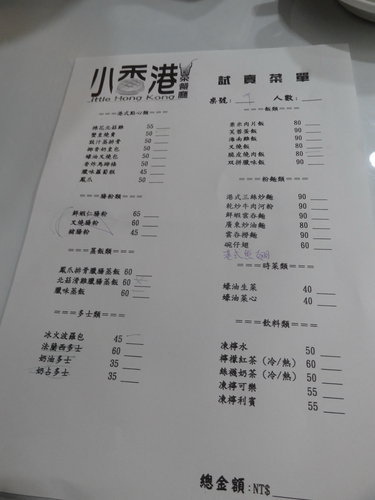 小香港
茶餐廳
Little Hong Kong
試賣菜單
桌號： 人數：
===港式點心類===
蟹皇燒賣 50
豉汁蒸排骨
椰香奶皇包
蠔油叉燒包 50
香炸馬蹄條
臘味蘿蔔糕 45
鳳爪
===腸粉類===
鮮蝦仁腸粉 65
叉燒腸粉 60
豬腸粉 45
===蒸飯類===
鳳爪排骨臘腸蒸飯 60
北菇滑雞臘腸蒸飯 60
臘味蒸飯 60
===多士類===
冰火波羅包 45
法蘭西多士 60
奶油多士 35
奶占多士 35
===飯類===
粟米肉片飯 80
芙蓉蛋飯 90
海南雞飯 80
叉燒飯 80
脆皮燒肉飯 80
双拼臘味飯 90
===粉麵類===
港式三絲炒麵 90
乾炒牛肉河粉 90
鮮蝦雲吞麵 90
廣東炒油麵 80
雲吞撈麵 90
碗仔翅 60
===時菜類===
蠔油生菜 40
蠔油菜心 40
===飲料類===
凍檸水 50
檸檬紅茶（冷/熱） 60
絲襪奶茶（冷/熱） 50
凍檸可樂 55
凍檸利賓 55
總金額:NT$